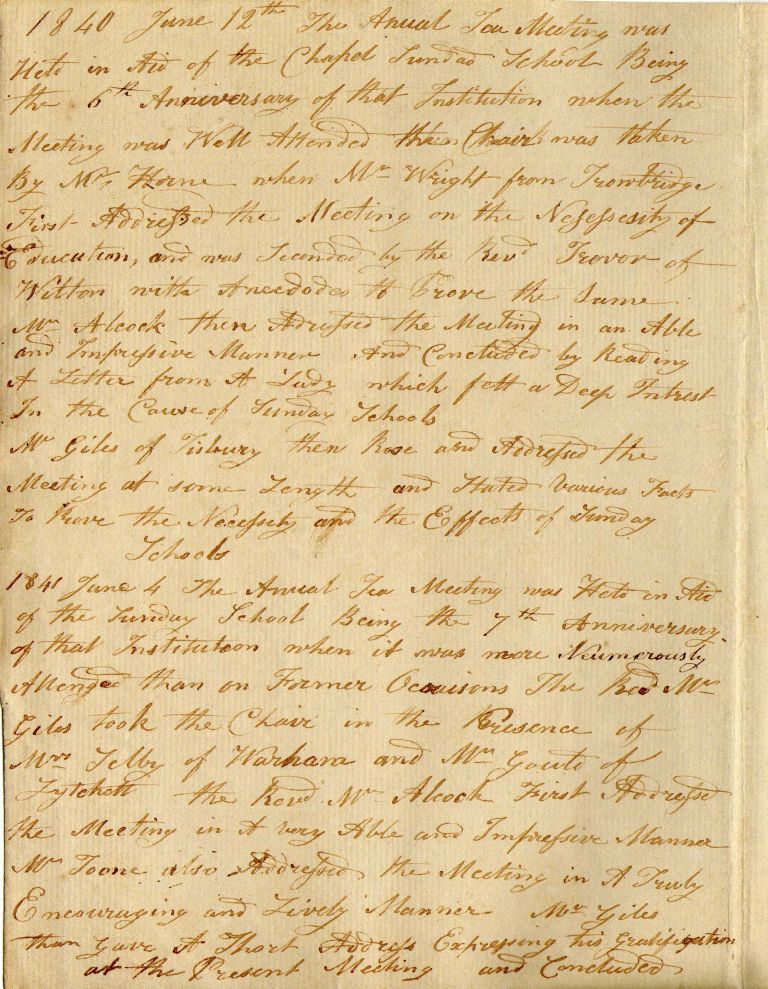 1840 June 12th The Anual Tea Meeting was
Held in Aid of the Chapel Sunday School Being
the 6th Anniversary of that Institution when the
Meeting was Well Attended the Chair was taken
By Mr Horne when Mr Wright from Trowbridge
First Addressed the Meeting on the Nesessesity of
Education, and was Seconded by the Revd Trovor of
Wilton with Anecdodes to Prove the Same
Mr Alcock then Adressed the Meeting in an Able
and Impressive Manner And Concluded by Reading
A Letter from A Lady which felt a Deep Intrest
In the Cause of Sunday Schools
Mr Giles of Tisbury then Rose and Addressed the
Meeting at some Length and Stated Various Facts
To Prove the Necessity and the Effects of Sunday
Schools
1841 June 4 The Anual Tea Meeting was Held in Aid
of the Sunday School Being the 7th Anniversary
of that Institution when it was more Neumerously
Attended than on Former Ocauisons The Revd Mr
Giles took the Chair in the Presence of
Mrs Selby of Warham and Mr of
Lytchett the Revd Mr Alcock First Addressed
the Meeting in A very Able and Impressive Manner
Mr Toone also Addressed the Meeting in A Truly
Encouraging and Lively Manner Mr Giles
than Gave A Short Address Expressing his Gratification
at the Present Meeting and Concluded